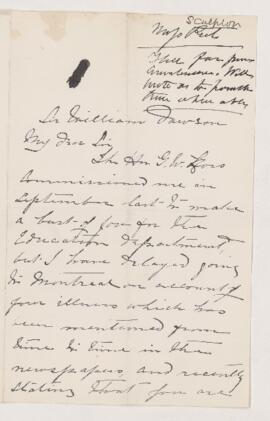 Sculptor
Miss Peel
Sir William Dawson
My Dear Sir
The Hon G. W. Ross
Commissioned me in
September last to make
a bust of you for the
Education Department,
but I have delayed going
to Montreal on account of
your illness which has
been mentioned from
time to time in the
newspapers, and recently
stating that you are